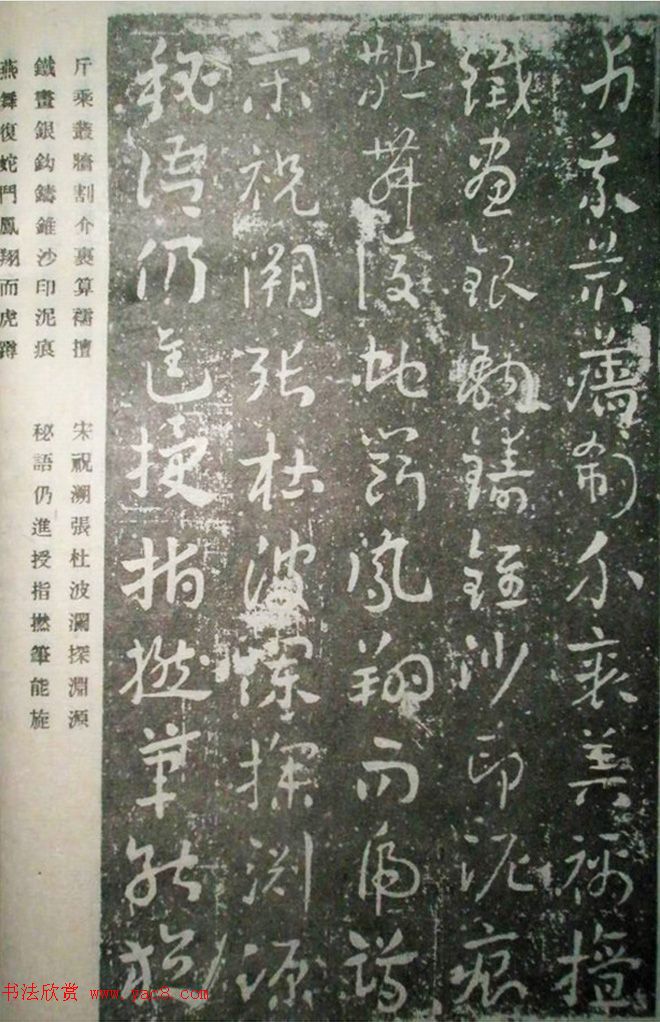 斤乘叢牆割介裹算襦擅
鐵畫銀鈎鑄錐沙印泥痕
燕舞復蛇鬥鳳翔而虎蹲
宋祝溯張杜波瀾探淵源
秘語仍進授指撚筆能旋
斤乘叢牆割介裹算襦擅
鐵畫銀鈎鑄錐沙印泥痕
燕舞復蛇鬥鳳翔而虎蹲
宋祝溯張杜波瀾探淵源
秘語仍進授指撚筆能旋
书法欣赏 www.yac8.com